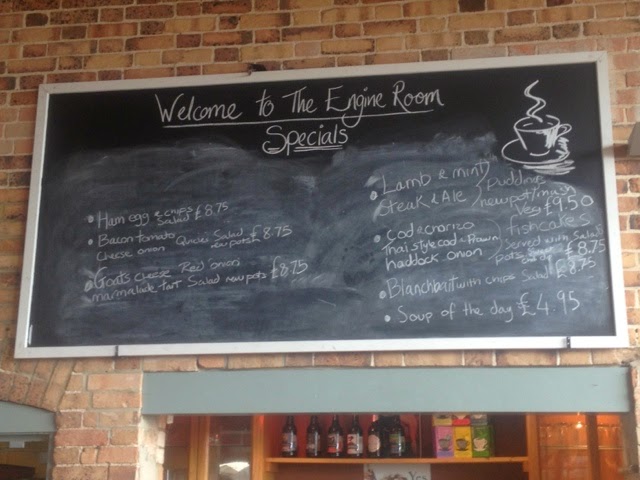 Welcome to The Engine Room
Specials
• Ham egg & chips £8.75
Salad
• Bacon tomato
cheese onion Quiche Salad £8.75
new pots
• Goats cheese Red onion
marmelade tart Salad new pots £8.75
• Lamb & mint
Steak & Ale
Puddings
new pot/mash
Veg £9.50
• Cod & chorizo
Thai style cod & Prawn
haddock onion
fishcakes
Served with Salad
£8.75
• Blanchbait with chips Salad £8.75
• Soup of the day £4.95